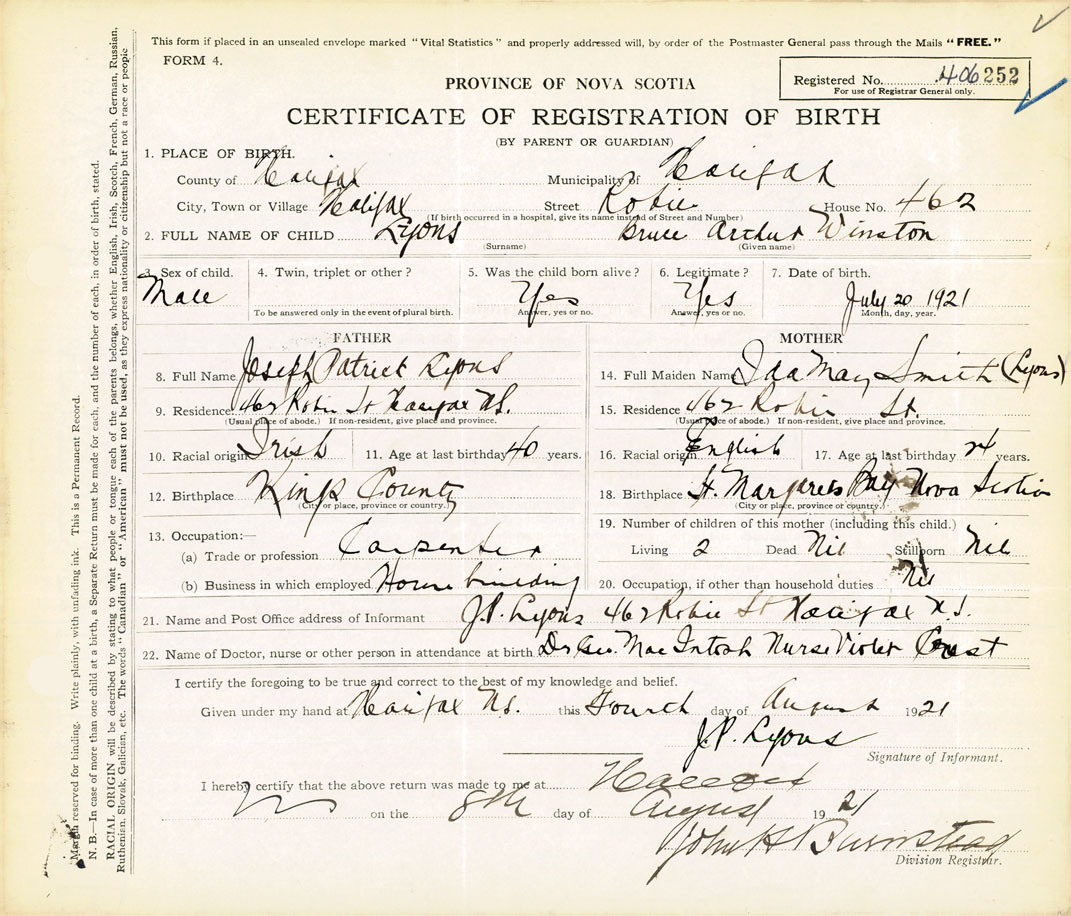 This form if placed in an unsealed envelope marked "Vital Statistics" and properly addressed will, by order of the Postmaster General pass through the Mails "FREE."
FORM 4.
Registered No. 406 252
For use of Registrar General only.
PROVINCE OF NOVA SCOTIA
CERTIFICATE OF REGISTRATION OF BIRTH
(BY PARENT OR GUARDIAN)
1. PLACE OF BIRTH.
County of Halifax Municipality of Halifax
City, Town or Village Halifax Street Robie House No. 462
(If birth occurred in a hospital, give its name instead of Street and Number)
2. FULL NAME OF CHILD Lyons Bruce Arthur Winston
(Surname) (Given name)
3. Sex of child. 4. Twin, triplet or other? 5. Was the child born alive? 6. Legitimate? 7. Date of birth.
Male Yes Yes July 20 1921
To be answered only in the event of plural birth. Answer, yes or no. Answer, yes or no. Month, day, year.
FATHER
8. Full Name Joseph Patrick Lyons
9. Residence 462 Robie St Halifax N.S.
(Usual place of abode.) If non-resident, give place and province.
10. Racial origin Irish 11. Age at last birthday 40 years.
12. Birthplace Kings County
(City or place, province or country.)
13. Occupation:—
(a) Trade or profession Carpenter
(b) Business in which employed House building
MOTHER
14. Full Maiden Name Ida May Smith (Lyons)
15. Residence 462 Robie St.
(Usual place of abode.) If non-resident, give place and province.
16. Racial origin English 17. Age at last birthday years.
18. Birthplace St. Margrets Bay Nova Scotia
(City or place, province or country.)
19. Number of children of this mother (including this child.)
Living 2 Dead Nil Stillborn Nil
20. Occupation, if other than household duties Nil
21. Name and Post Office address of Informant J.P. Lyons 462 Robie St Halifax N.S.
22. Name of Doctor, nurse or other person in attendance at birth Dr Geo. MacIntosh Nurse Violet
I certify the foregoing to be true and correct to the best of my knowledge and belief.
Given under my hand at Halifax N.S. this Fourth day of August 1921
J.P. Lyons
Signature of Informant.
I hereby certify that the above return was made to me at Halifax
on the 8th day of August 1921
John H Barnstead
Division Registrar.
Margin reserved for binding. Write plainly, with unfading ink. This is a Permanent Record.
N. B.—In case of more than one child at a birth, a Separate Return must be made for each, and the number of each, in order of birth, stated.
RACIAL ORIGIN will be described by stating to what people or tongue each of the parents belongs, whether English, Irish, Scotch, French, German, Russian,
Ruthenian, Slovak, Galician, etc. The words "Canadian" or "American" must not be used, as they express nationality or citizenship but not a race or people